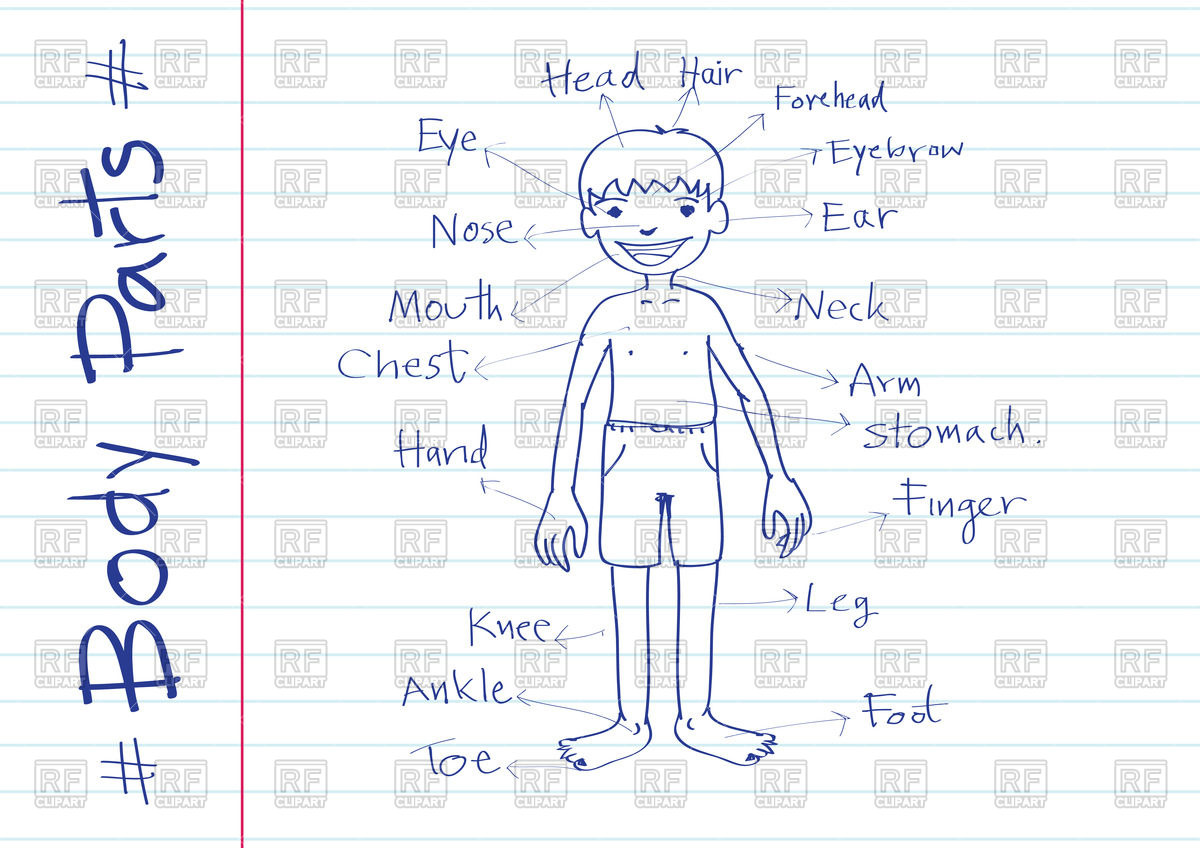 # Body Parts #
Head
Hair
Forehead
Eye
Eyebrow
Nose
Ear
Mouth
Neck
Chest
Arm
Stomach.
Hand
Finger
Leg
Knee
Ankle
Foot
Toe
RF CLIPART